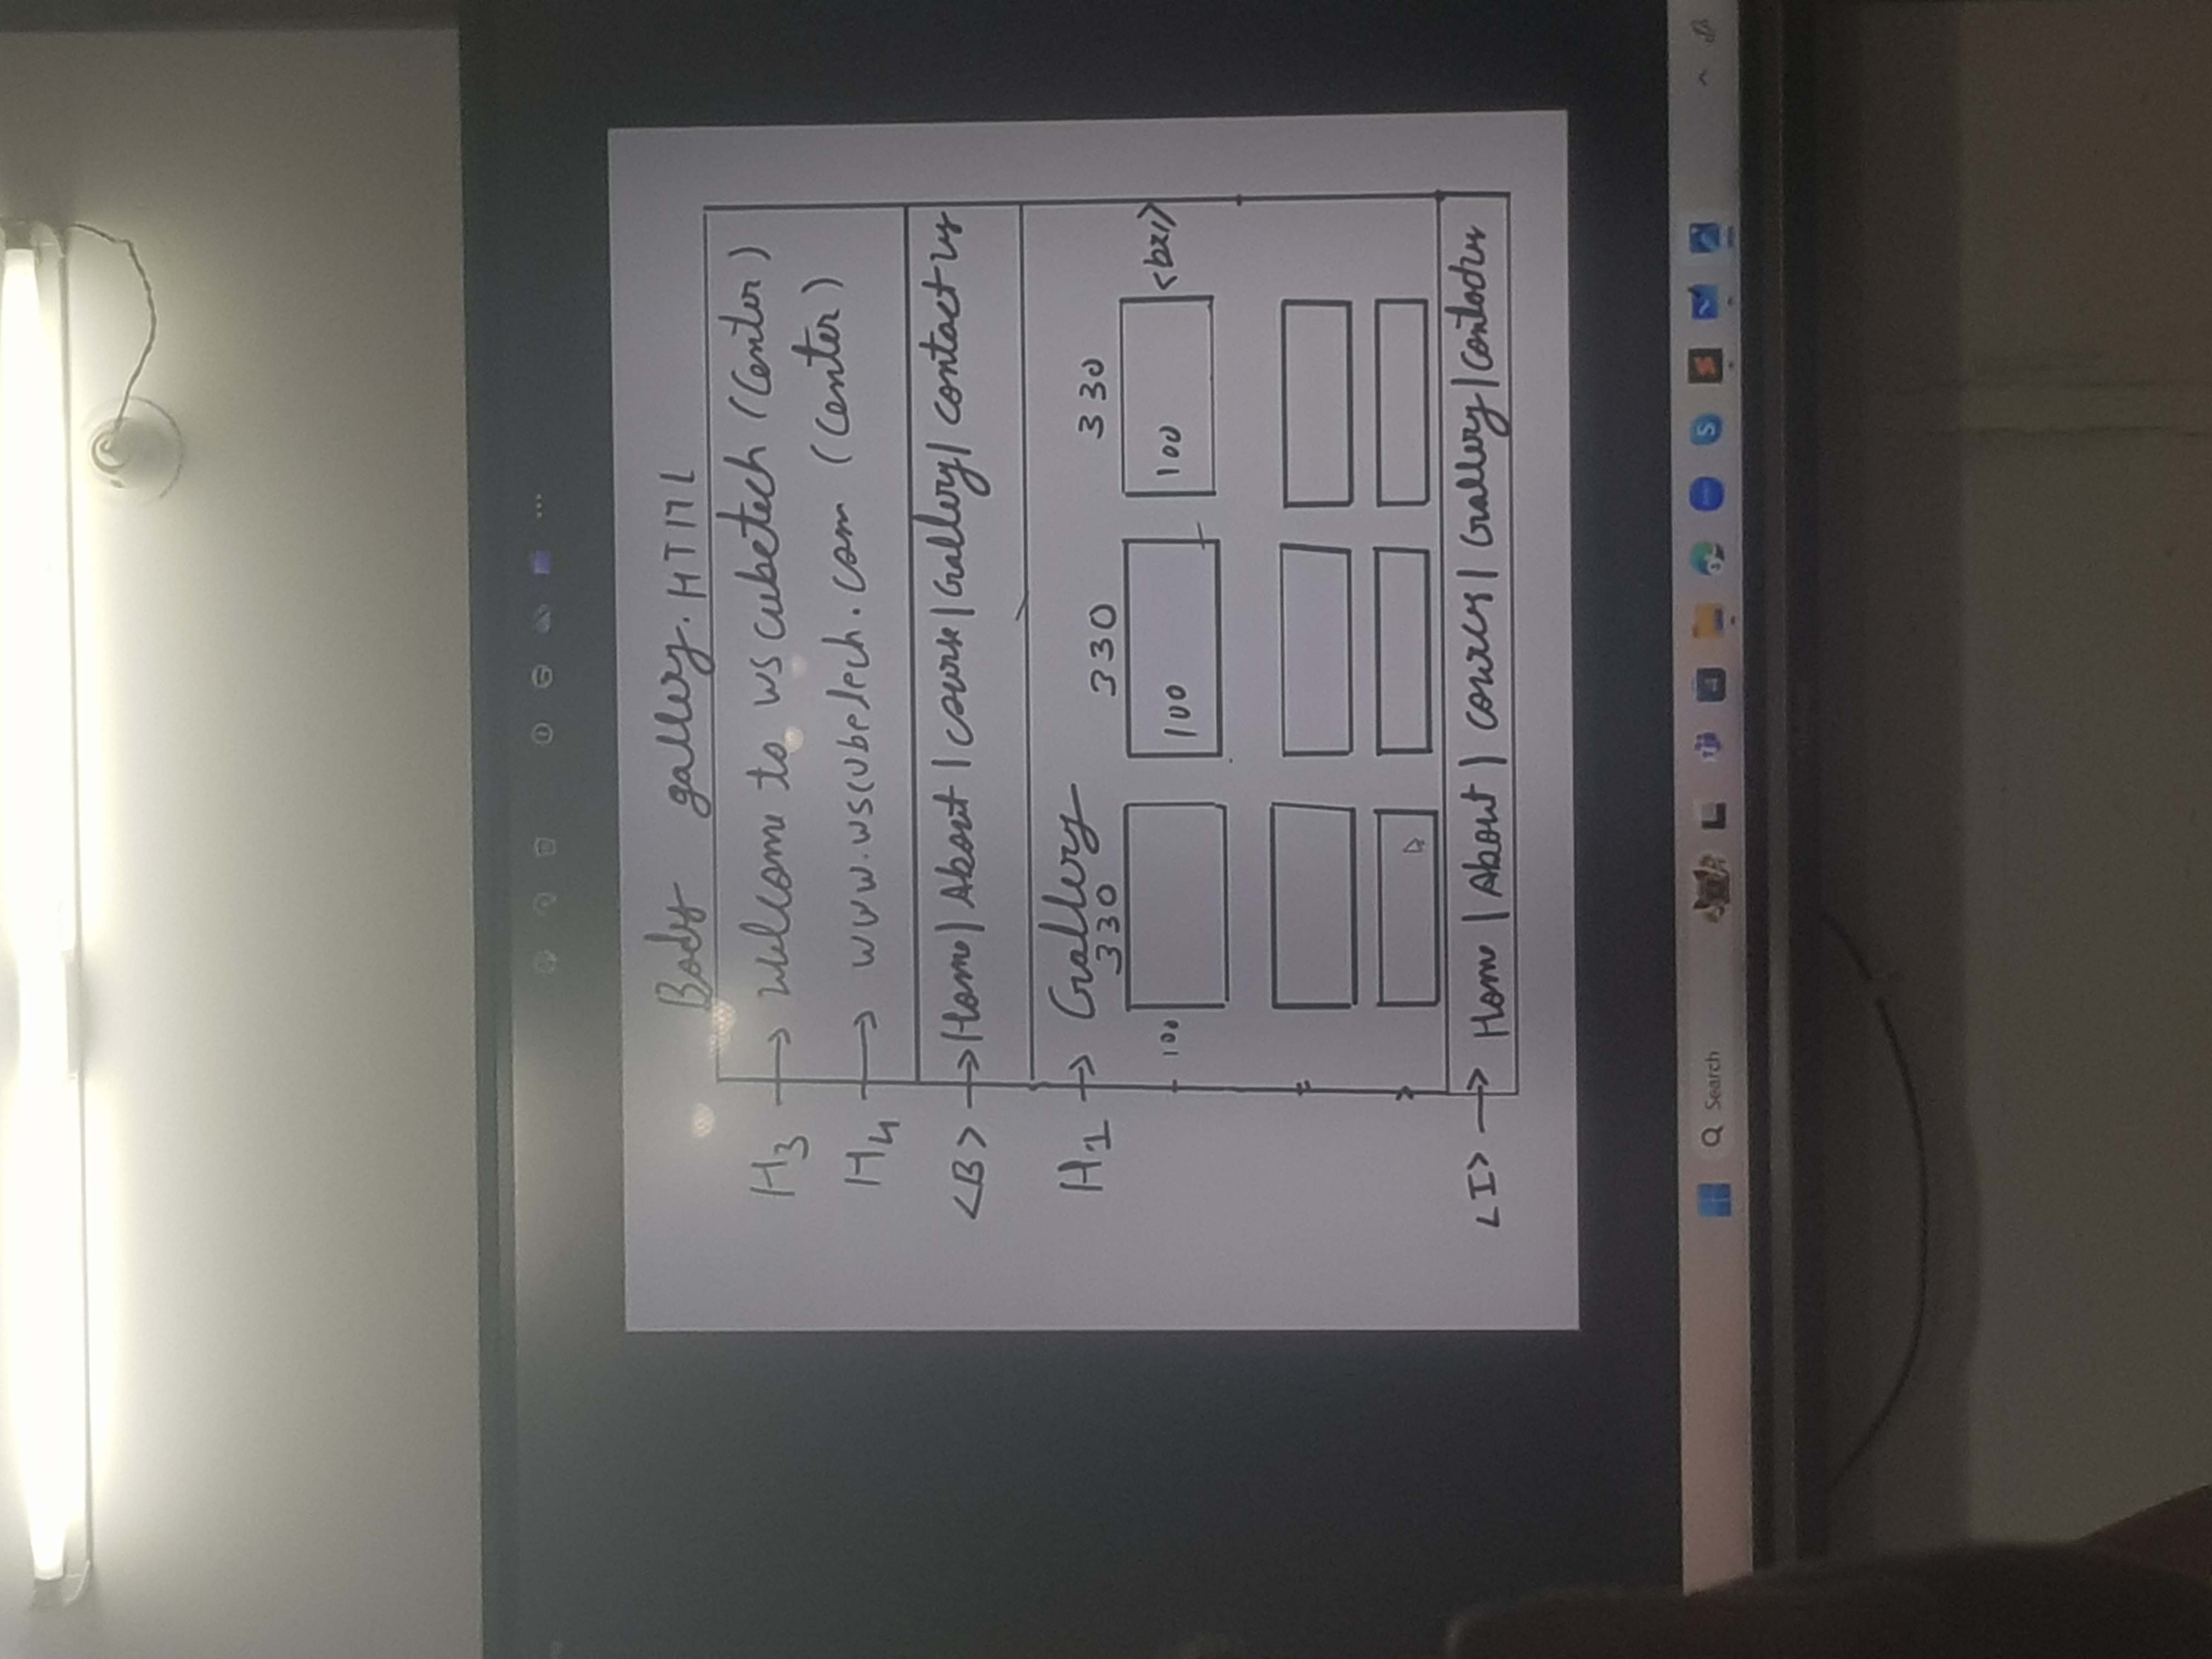 Body gallery.HTML
H3 → Welcome to ws cubetech (Center)
H4 → www.wscubetech.com (Center)
<B> → Home | About | course | Gallery | contact us
H1 → Gallery
330 330 330
100 100 100
<I> → Home | About | courses | Gallery | Contact us
Search